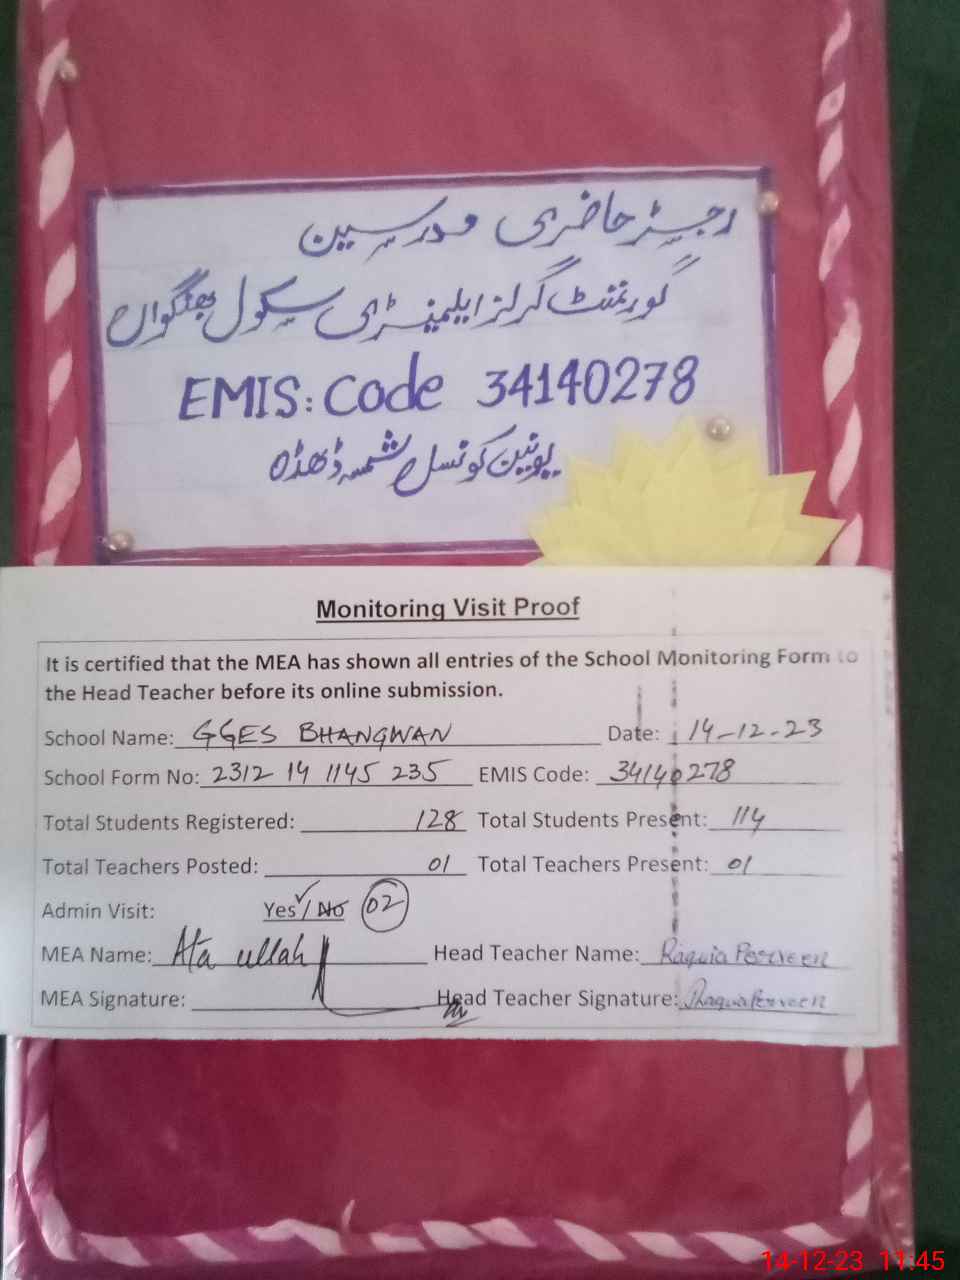 رجسٹر حاضری مدرسین
گورنمنٹ گرلز ایلیمنٹری سکول بھنگواں
EMIS: Code 34140278
یونین کونسل شمسہ ڈھڈہ
Monitoring Visit Proof
It is certified that the MEA has shown all entries of the School Monitoring Form to
the Head Teacher before its online submission.
School Name: GGES BHANGWAN Date: 14-12-23
School Form No: 2312 14 1145 235 EMIS Code: 34140278
Total Students Registered: 128 Total Students Present: 114
Total Teachers Posted: 01 Total Teachers Present: 01
Admin Visit: Yes / No 02
MEA Name: Ata ullah Head Teacher Name: Raquia Perveen
MEA Signature: Head Teacher Signature: Raquia Perveen
14-12-23 11:45